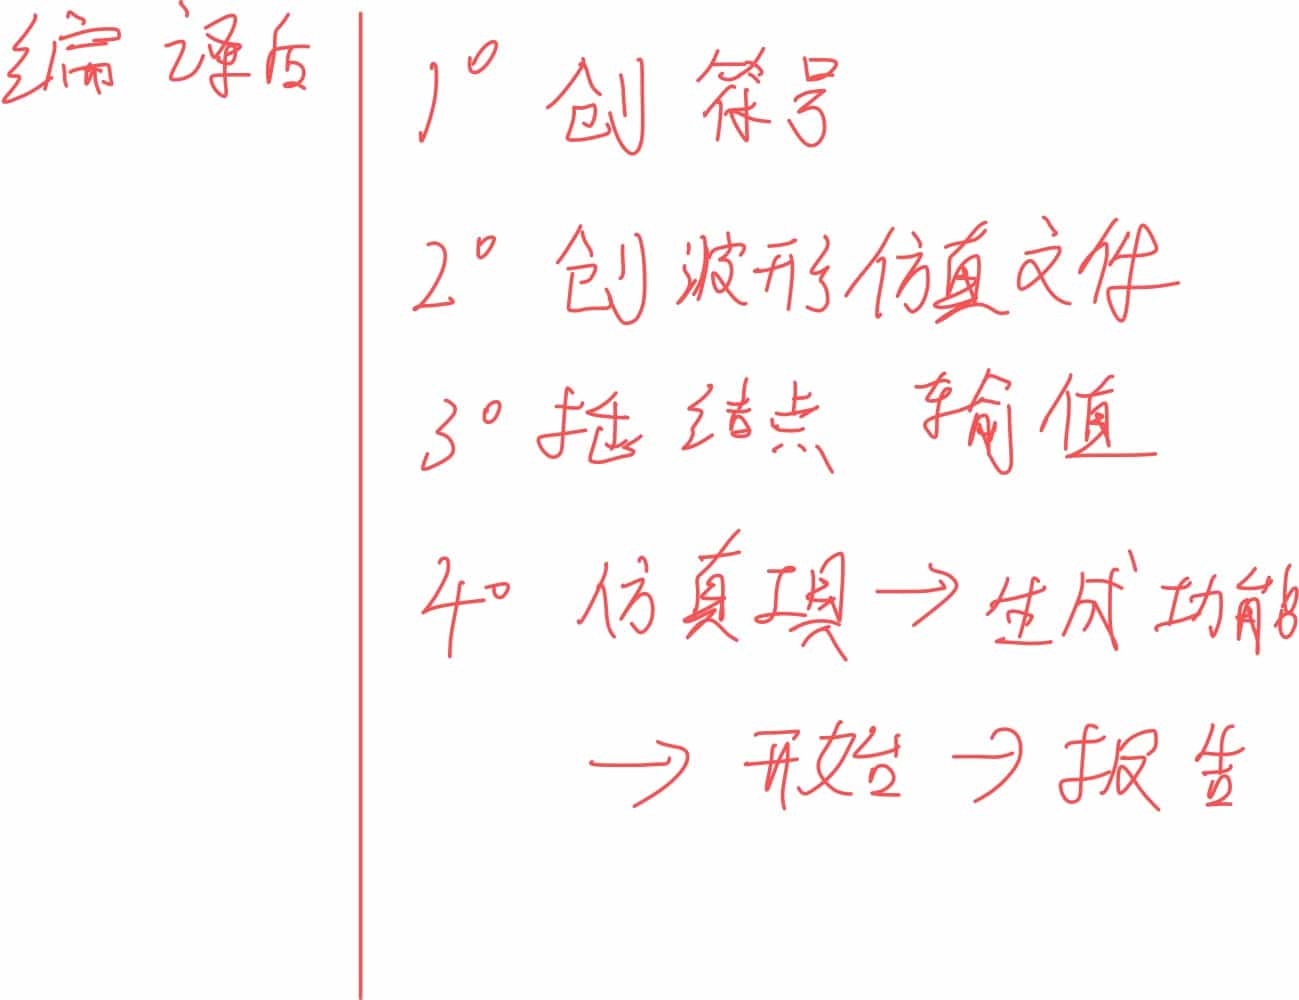 编译后
1° 创符号
2° 创波形仿真文件
3° 找结点 输值
4° 仿真工具→生成功能
→开始→报告